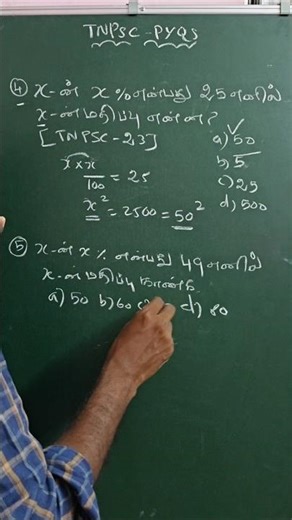 TNPSC - PYQS
④ x-ன் x % என்பது 25 எனில்
x-ன் மதிப்பு என்ன?
[TNPSC-23]
a) 50 ✓
b) 5
c) 25
d) 500
x × x / 100 = 25
x² = 2500 = 50²
⑤ x-ன் x % என்பது 49 எனில்
x-ன் மதிப்பு காண்க
a) 50 b) 60 d) 80